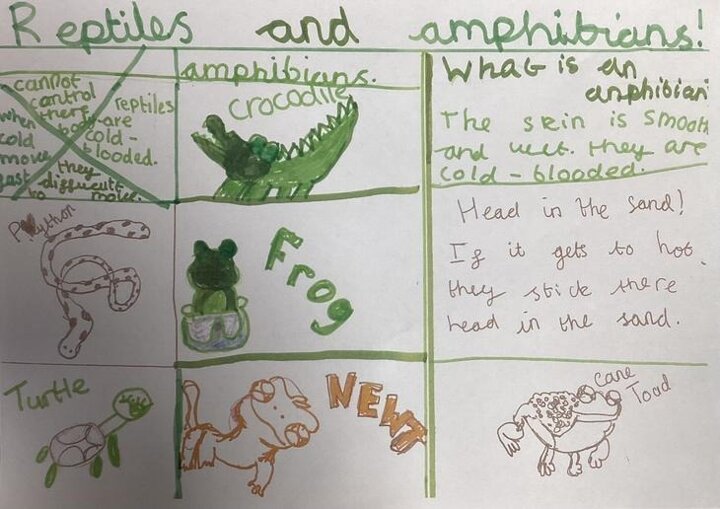 Reptiles and amphibians!
cannot
control
there reptiles
when body are
cold cold-
move blooded.
fast they
difficulte
to move.
Python
Turtle
amphibians.
crocodile
Frog
NEWT
What is an
anphibian
The skin is smooth
and wet. they are
cold-blooded.
Head in the sand!
If it gets to hot.
they stick there
head in the sand.
cane
Toad